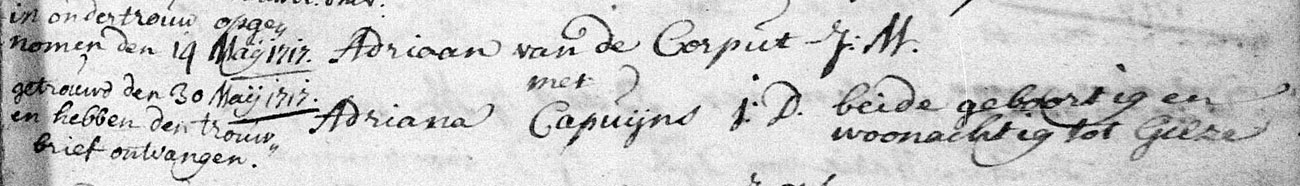 in ondertrouw opge„
nomen den 19 Maij 1717.
getrouwd den 30 Maij 1717.
en hebben den trouw„
brief ontvangen.
Adriaan van de Corput J: M.
met
Adriana Capuijns j: D. beide geboortig en
woonachtig tot Gilze